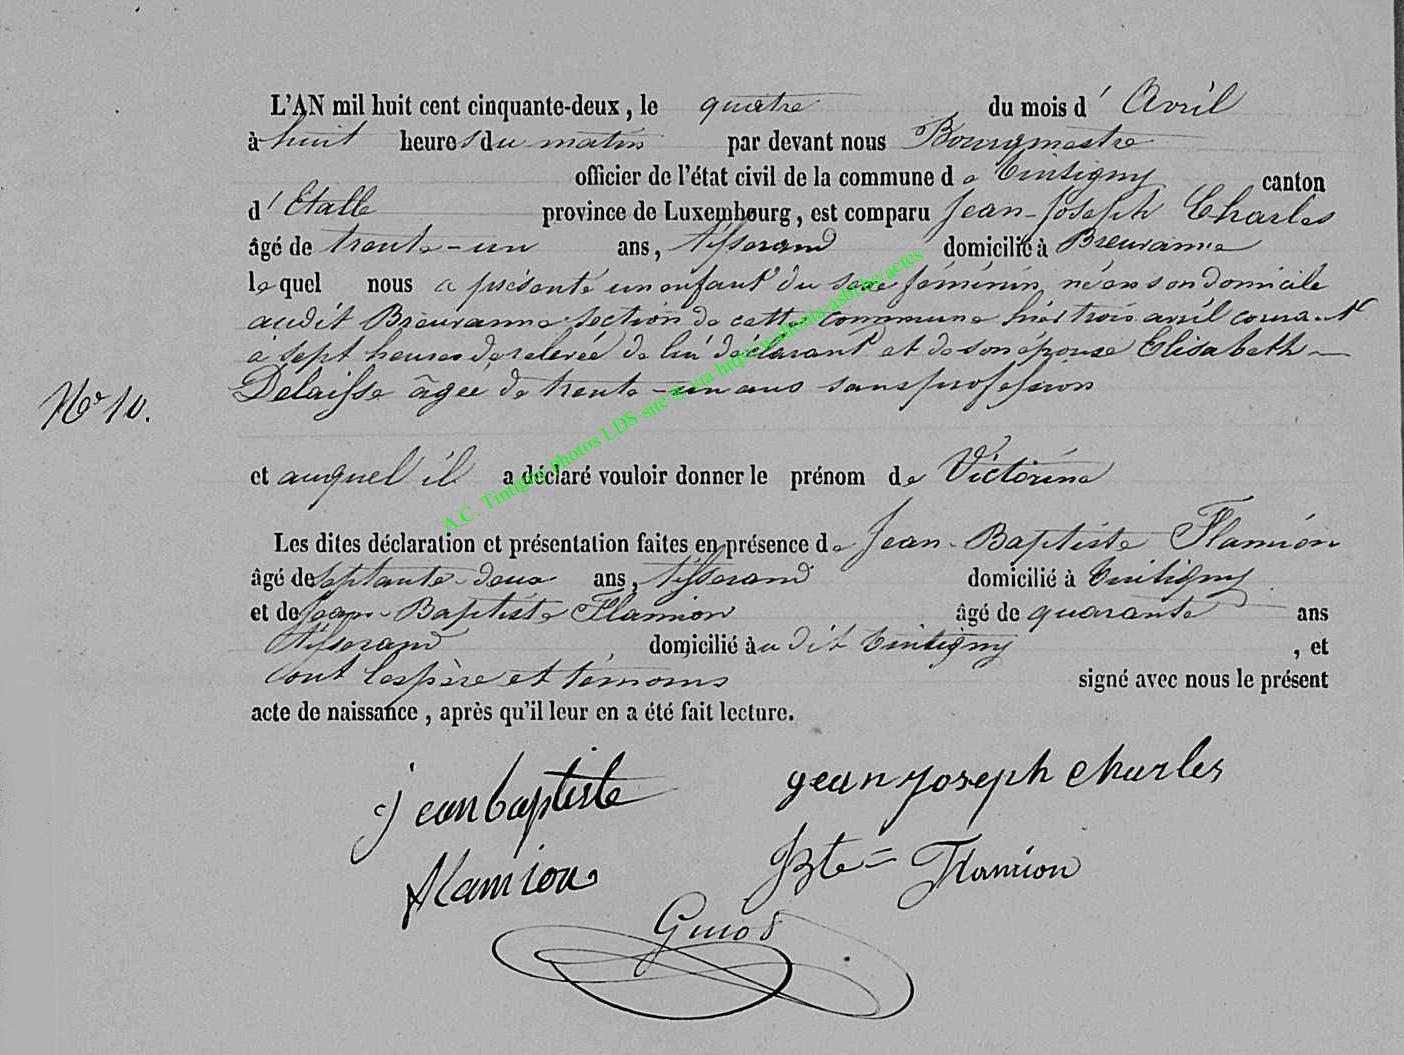 L'AN mil huit cent cinquante-deux, le quatre du mois d' Avril
à huit heures du matin par devant nous Bourgmestre
officier de l'état civil de la commune de Tintigny canton
d' Etalle province de Luxembourg, est comparu Jean-Joseph Charles
âgé de trente-un ans, tisserand domicilié à Breuvanne
lequel nous a présenté un enfant du sexe féminin, né en son domicile
audit Breuvanne section de cette commune hier trois avril courant
à sept heures de relevée de lui déclarant et de son épouse Elisabeth
Delaisse âgée de trente-un ans sans profession
N° 10.
et auquel il a déclaré vouloir donner le prénom de Victorine
Les dites déclaration et présentation faites en présence de Jean-Baptiste Flamion
âgé de septante-deux ans, tisserand domicilié à Tintigny
et de Jean-Baptiste Flamion âgé de quarante ans
tisserand domicilié audit Tintigny, et
ont les père et témoins signé avec nous le présent
acte de naissance, après qu'il leur en a été fait lecture.
jean baptiste jean joseph charles
flamion JBte= Flamion
Guiot
A.C. Tintigny photos LDS site a via http://wallonia-asbl.be/actes